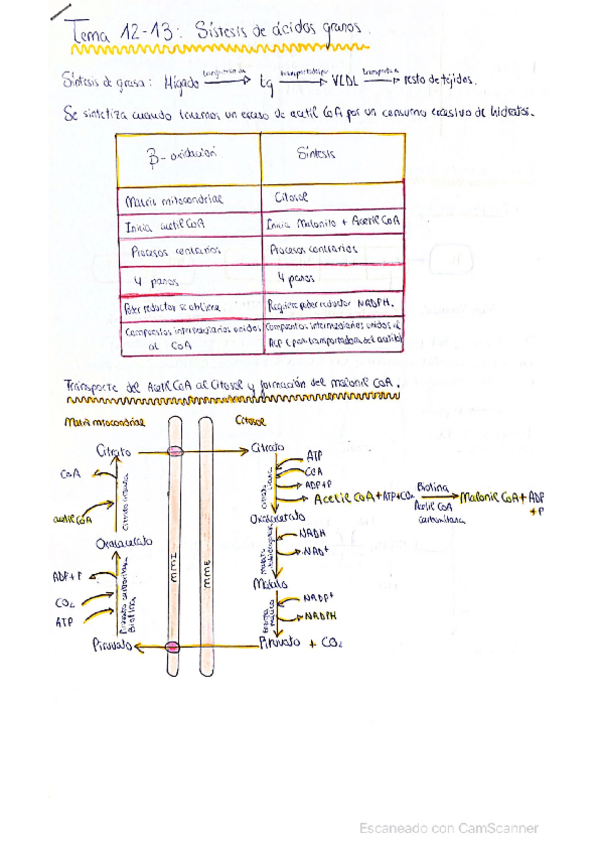 Tema 12-13: Síntesis de ácidos grasos.
Síntesis de grasa: Hígado → tg → transportados por → VLDL → resto de tejidos.
Se sintetiza cuando tenemos un exceso de acetil CoA por un consumo excesivo de hidratos.
β-oxidación Síntesis
Matriz mitocondrial Citosol
Inicia acetil CoA Inicia Malonilo + Acetil CoA
Procesos contrarios Procesos contrarios
4 pasos 4 pasos
Poder reductor se obtiene Requiere poder reductor NADPH.
Compuestos intermediarios unidos al CoA Compuestos intermediarios unidos al ACP (
Transporte del Acetil CoA al Citosol y formación del malonil CoA.
Matriz mitocondrial Citosol
Citrato Citrato
ATP
CoA CoA
ADP+P
Citrato sintasa
Citrato liasa
acetil CoA Acetil CoA + ATP + CO₂ Biotina Malonil CoA + ADP + P
Acetil CoA carboxilasa
Oxalacetato Oxalacetato
NADH
NAD⁺
MMI MME
ADP+P
CO₂
ATP
Piruvato carboxilasa Biotina
Malato
NADP⁺
NADPH
Piruvato Piruvato + CO₂
Escaneado con CamScanner